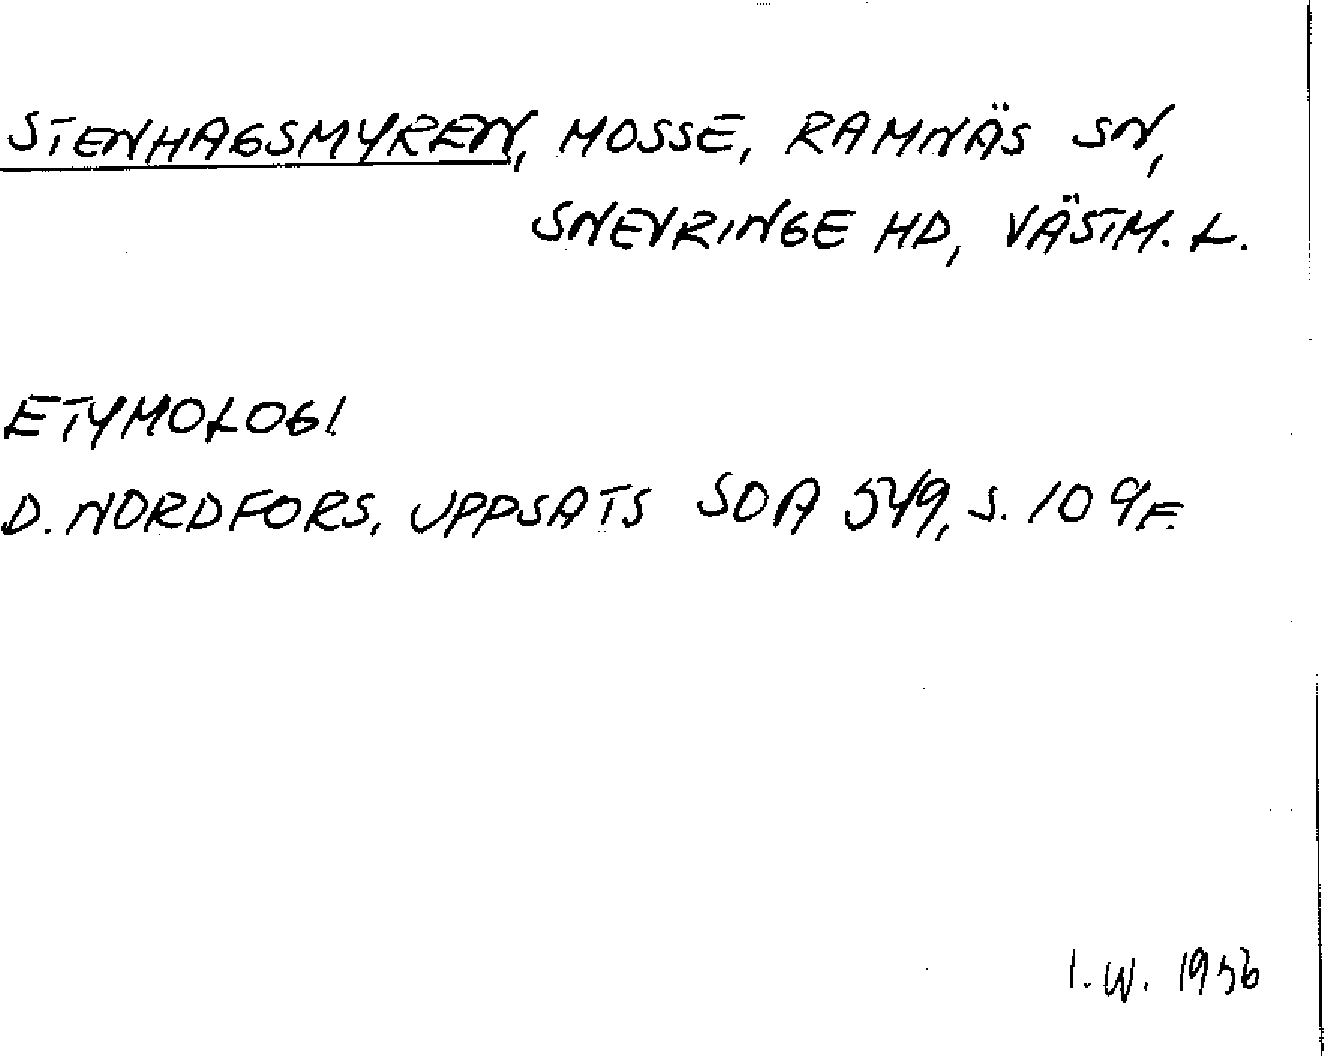 STENHAGSMYREN, MOSSE, RAMNÄS SN,
SNEVRINGE HD, VÄSTM. L.
ETYMOLOGI
D. NORDFORS, UPPSATS SOA 549, S. 109F.
I.W. 1956